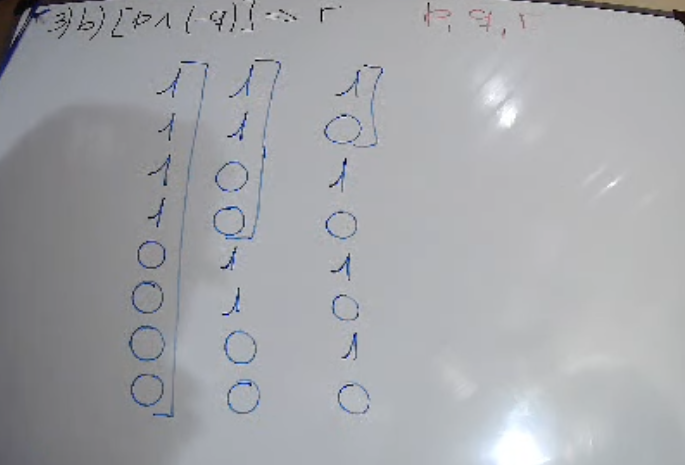 3)b) [p∧(¬q)] ⇒ r p, q, r
1 1 1
1 1 0
1 0 1
1 0 0
0 1 1
0 1 0
0 0 1
0 0 0